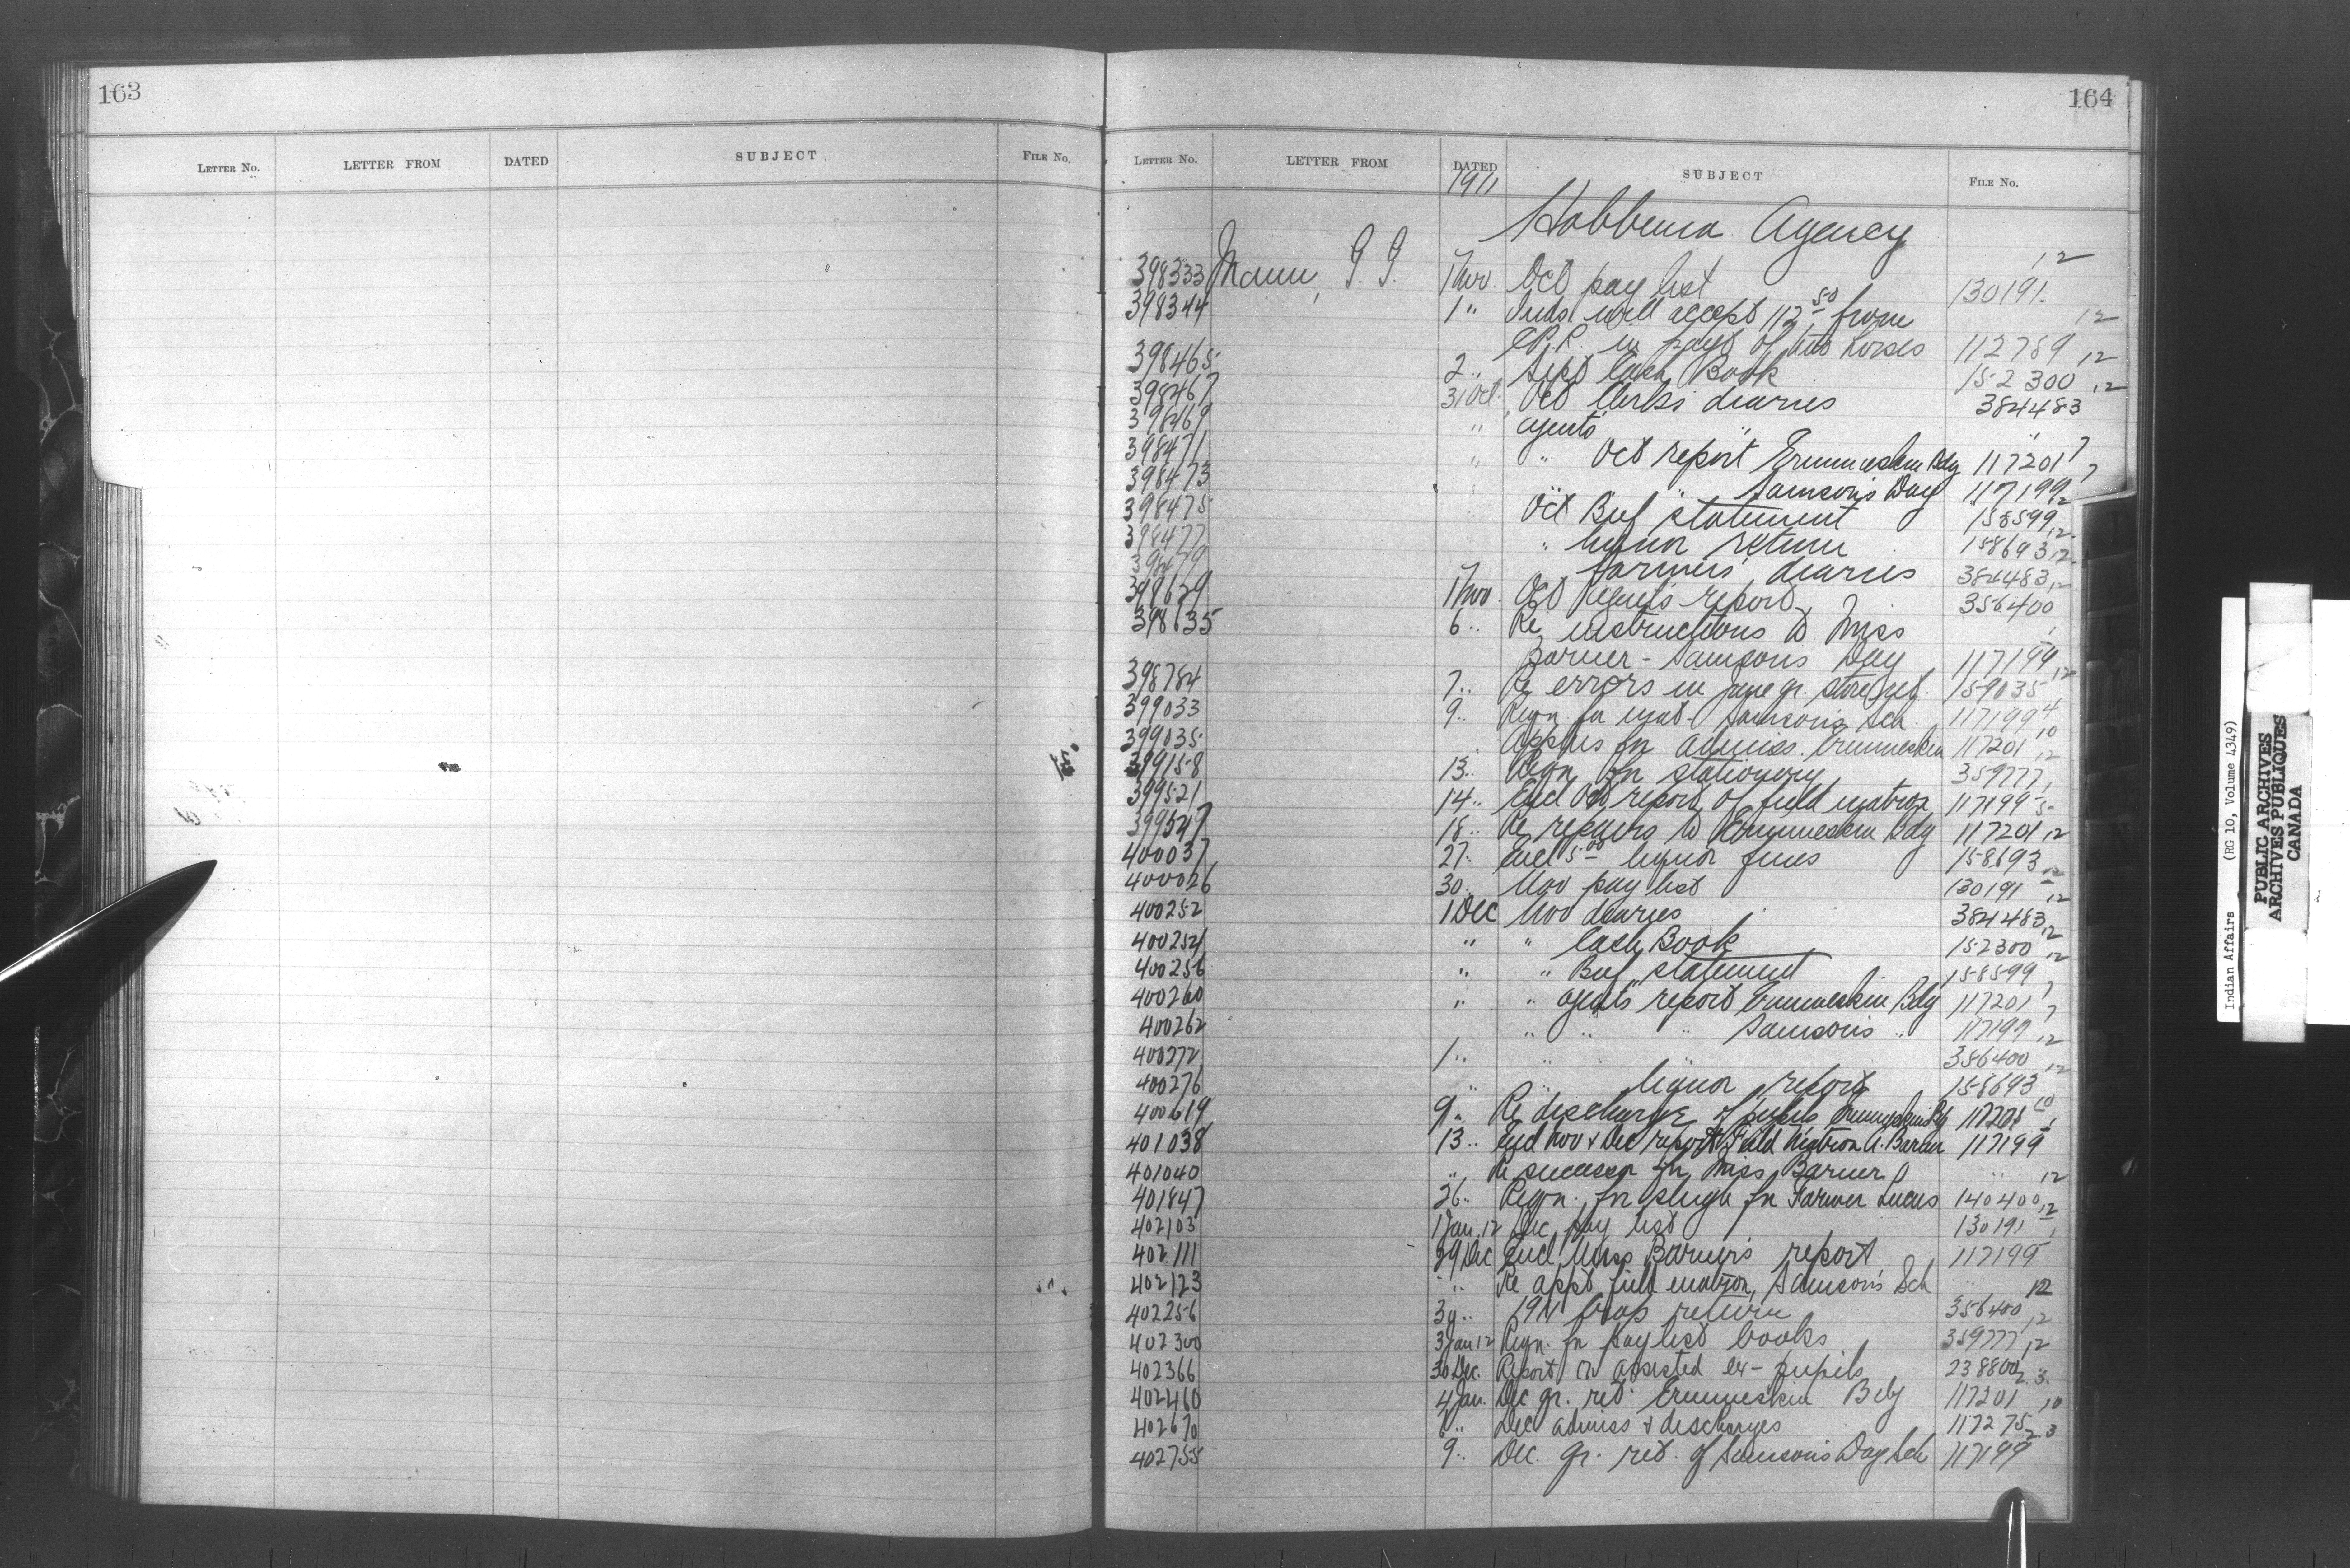 163
LETTER NO. LETTER FROM DATED SUBJECT FILE NO.
164
LETTER NO. LETTER FROM DATED SUBJECT FILE NO.
1911
Hobbema Agency
398333 Mann, G. G. 1 Nov. Oct pay list 130191 12
398344 1 " Inds. will accept 112 50 from
C.P.R. in payt of two horses 112789 12
398465 2 " Sept Cash Book 152300 12
398467 31 Oct. Oct Clerks diaries 384483 12
398469 " agents " "
398471 " " Oct report Ermineskin Bdg 117201 7
398473 " Samson's Day 117199 7
398475 Oct Beef statement 158599 12
398477 " liquor return 158693 12
398479 farmers' diaries 384483 12
398629 1 Nov. Oct Agents report 356400 12
398635 6 " Re instructions to Miss
Barner - Samsons Day 117199
398784 7 " Re errors in June qr. store ret. 159035 12
399033 9 " Reqn. for mat - Samson's Sch. 117199 4
399035 Appns for admiss. Ermineskin 117201 10
399158 13 " Reqn for stationery 359777 12
399521 14 " Encl Oct report of field matron 117199
399547 18 " Re repairs to Ermineskin Bdg 117201 5
400037 27 " Encl 5 00 liquor fines 158693 12
400026 30 " Nov pay list 130191 12
400252 1 Dec Nov diaries 384483 12
400254 " " Cash Book 152300 12
400256 " " Beef statement 158599 12
400260 " " agents report Ermineskin Bdg 117201 7
400262 " " " Samsons " 117199 7
400272 1 " " " 356400 12
400276 " " liquor report 158693 12
400619 9 " Re discharge of pupils Ermineskin Bdg 117201 10
401038 13 " Encl Nov & Dec reports Field Matron A. Barner 117199
401040 " Re successor for Miss Barner "
401847 26 " Reqn. for sleigh for Farmer Lucas 140400 12
402103 1 Jan. 12 Dec pay list 130191 12
402111 29 Dec Encl Miss Barner's report 117199
402123 " Re appt field matron, Samson's Sch "
402256 30 " 1911 Crop return 356400 12
402300 3 Jan 12 Reqn. for paylist books 359777 12
402366 30 Dec. Report on assisted ex-pupils 238800 12
402460 4 Jan. Dec qr. ret. Ermineskin Bdg 117201 3
402670 6 " Dec admiss & discharges 117275 10
402755 9 " Dec. qr. ret. of Samson's Day Sch 117199 3
Indian Affairs (RG 10, Volume 4349)
PUBLIC ARCHIVES
ARCHIVES PUBLIQUES
CANADA